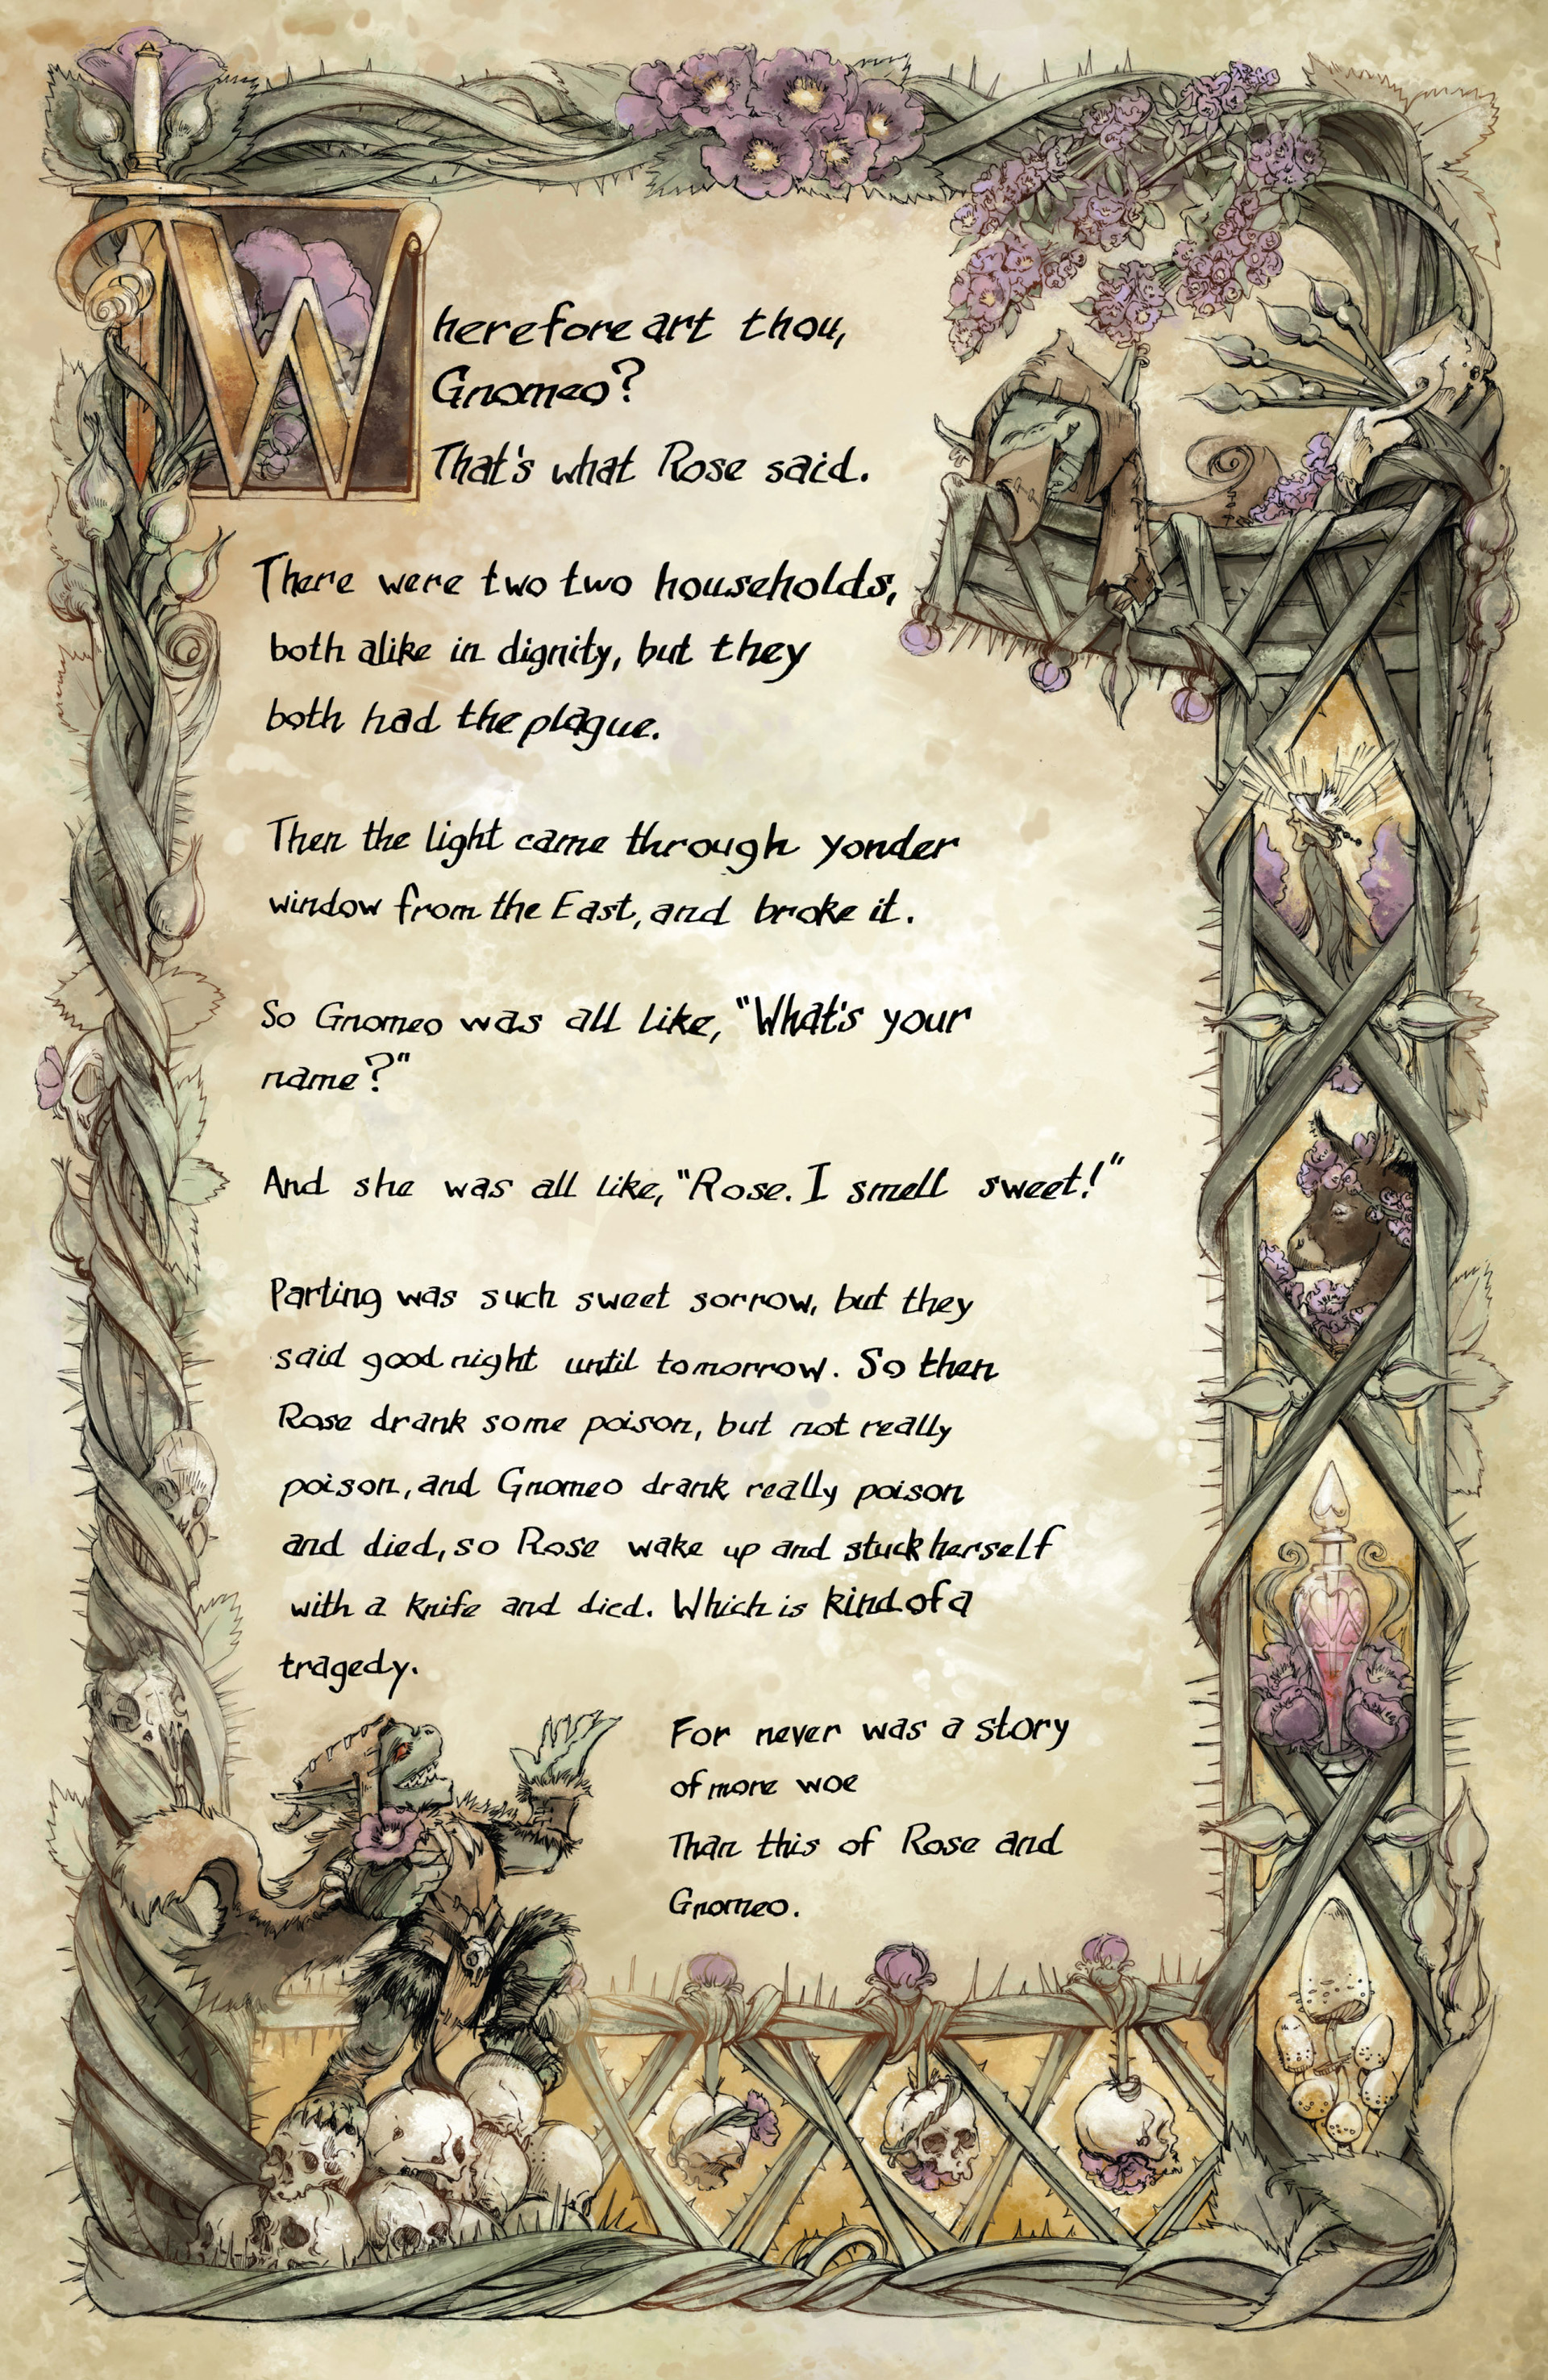 Wherefore art thou,
Gnomeo?
That's what Rose said.
There were two two households,
both alike in dignity, but they
both had the plague.
Then the light came through yonder
window from the East, and broke it.
So Gnomeo was all like, "What's your
name?"
And she was all like, "Rose. I smell sweet!"
Parting was such sweet sorrow, but they
said good night until tomorrow. So then
Rose drank some poison, but not really
poison, and Gnomeo drank really poison
and died, so Rose wake up and stuck herself
with a knife and died. Which is kind of a
tragedy.
For never was a story
of more woe
Than this of Rose and
Gnomeo.